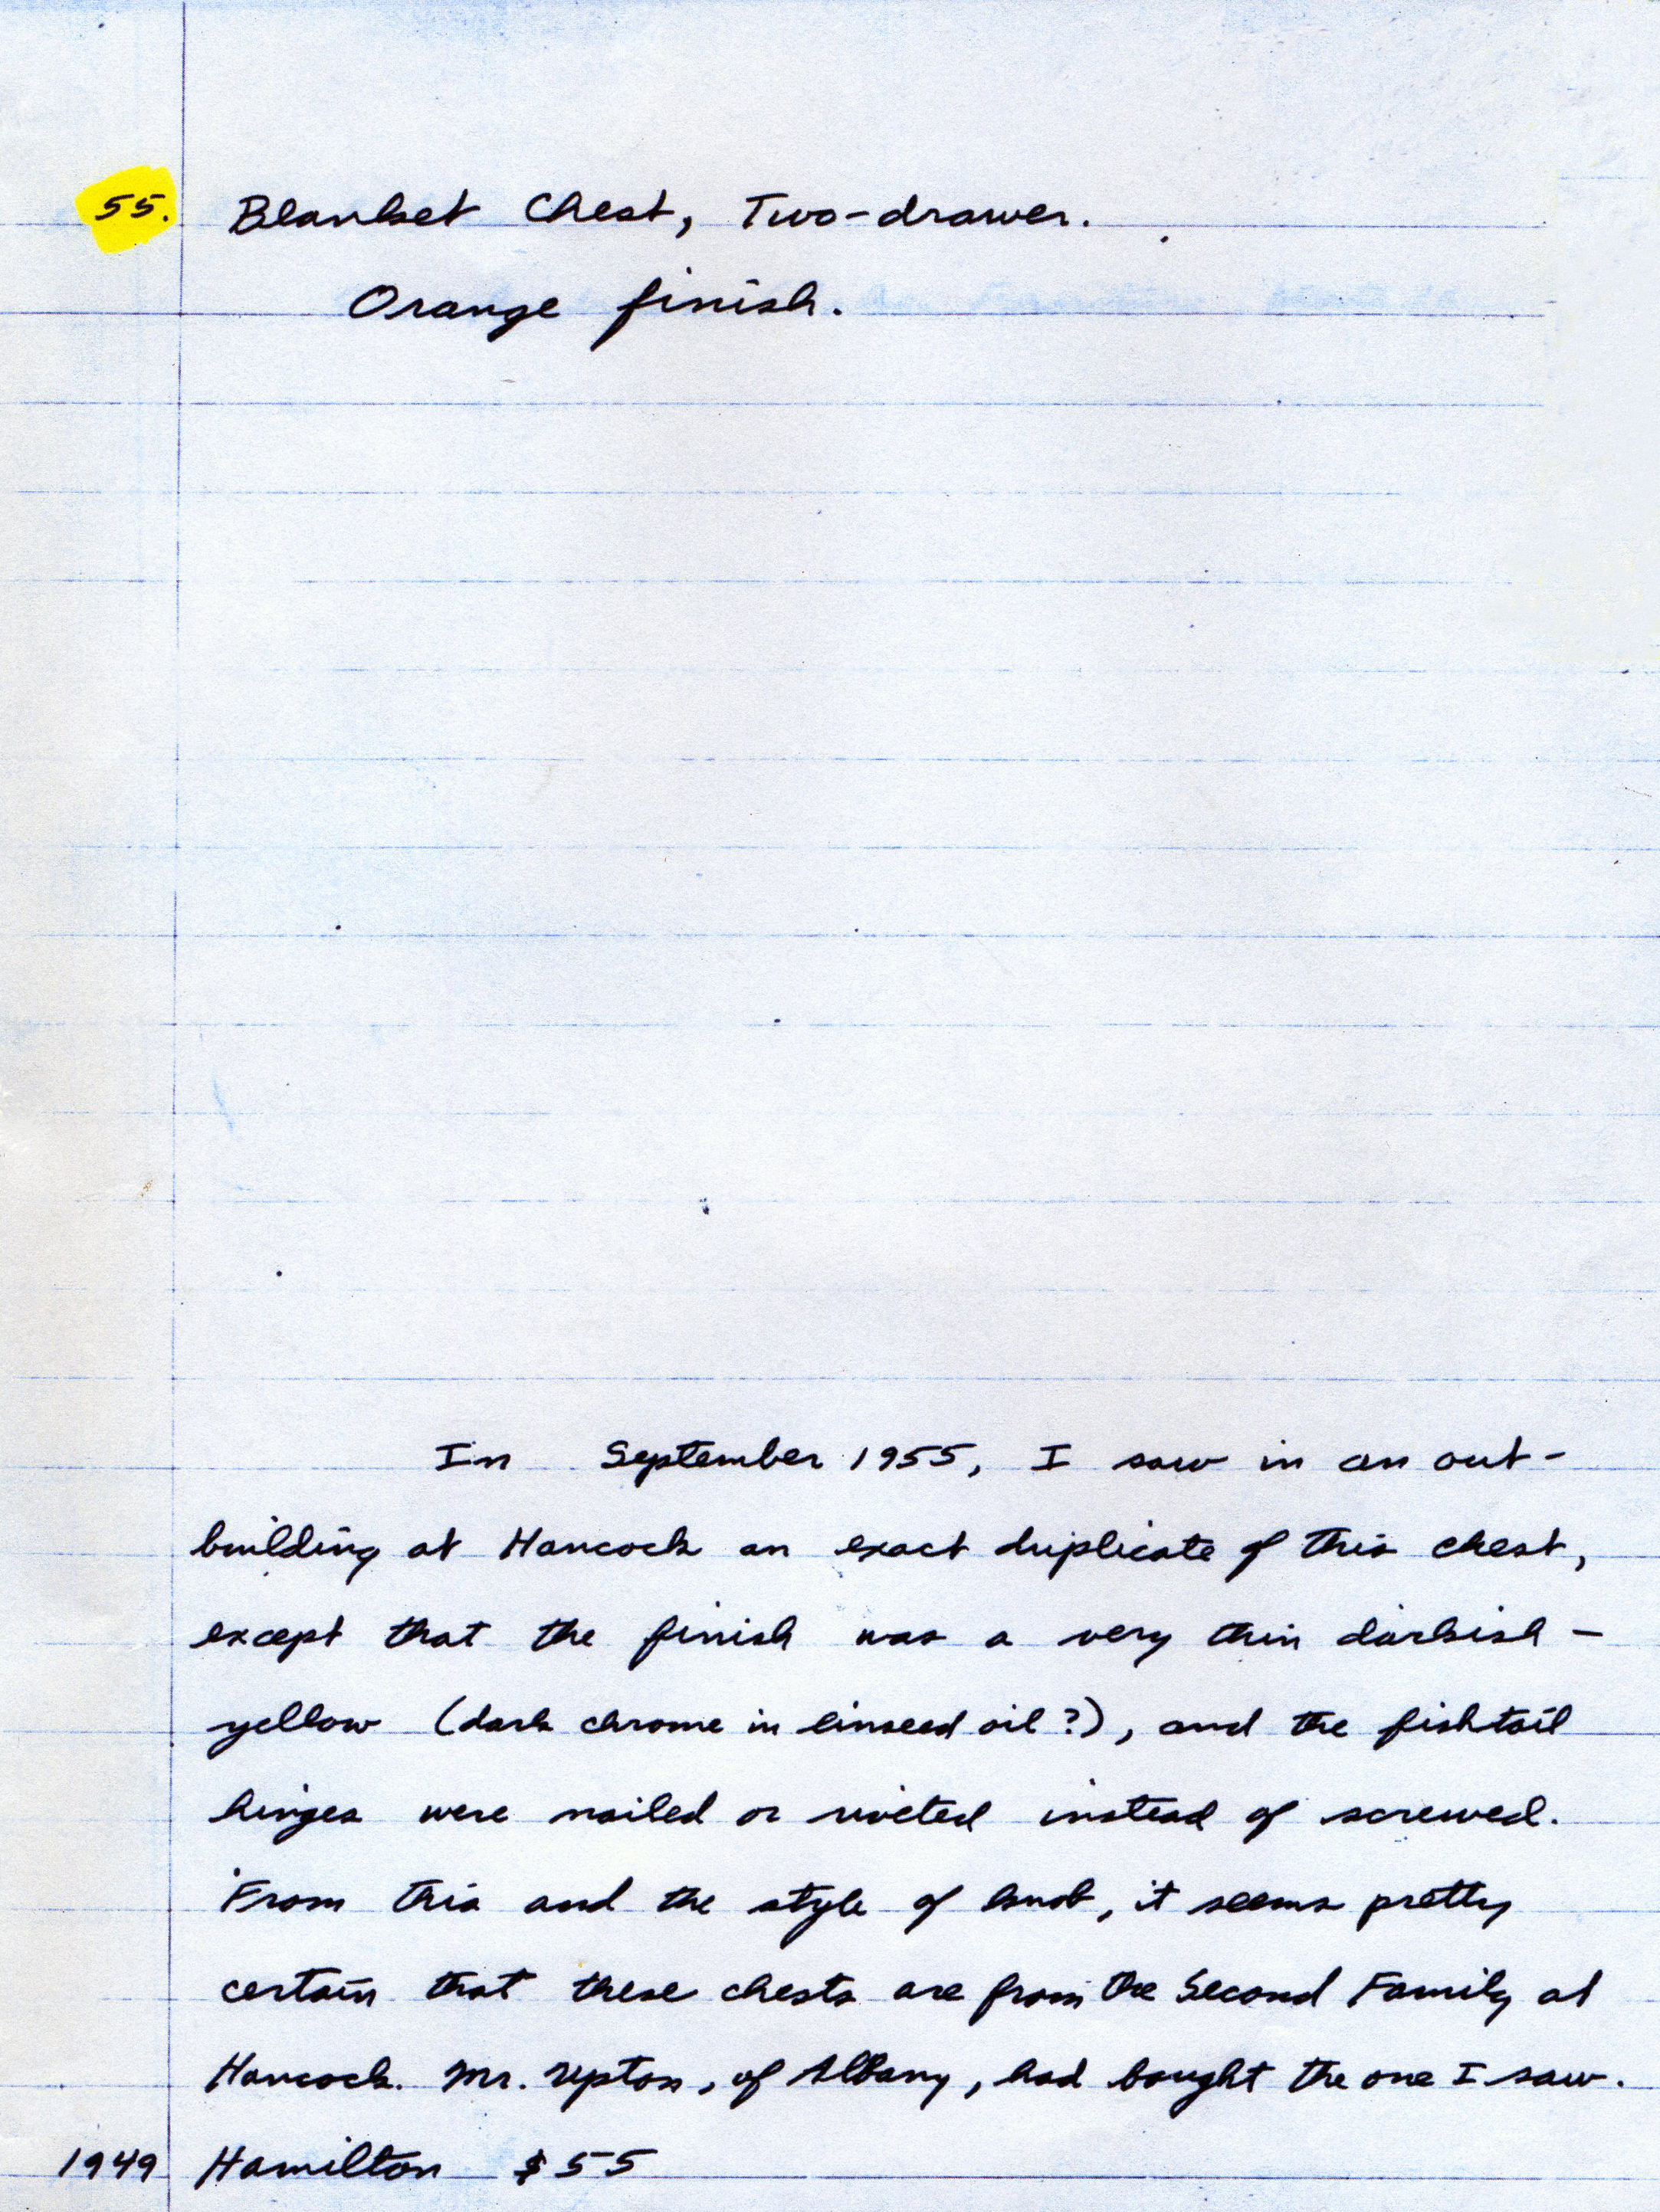 55. Blanket Chest, Two-drawer.
Orange finish.
In September 1955, I saw in an out-
building at Hancock an exact duplicate of this chest,
except that the finish was a very thin darkish-
yellow (dark chrome in linseed oil?), and the fishtail
hinges were nailed or riveted instead of screwed.
From this and the style of knob, it seems pretty
certain that these chests are from the Second Family at
Hancock. Mr. Upton, of Albany, had bought the one I saw.
1949 Hamilton $55